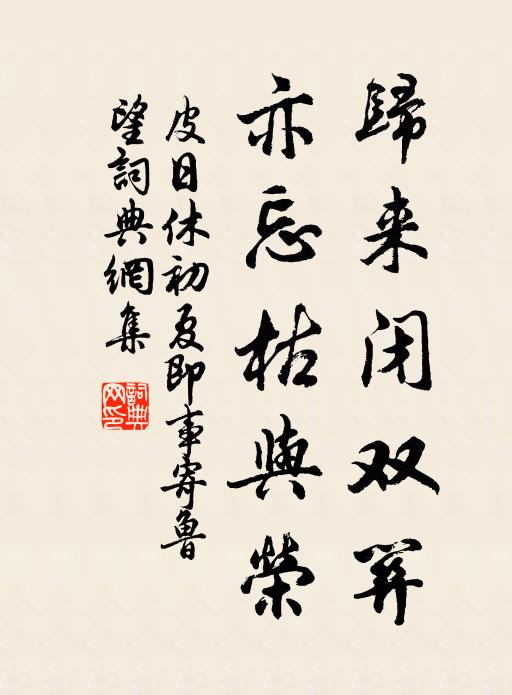 歸来闭双关
亦忘枯與榮
皮日休初夏即事寄魯
望詞典網集
詞典
网印